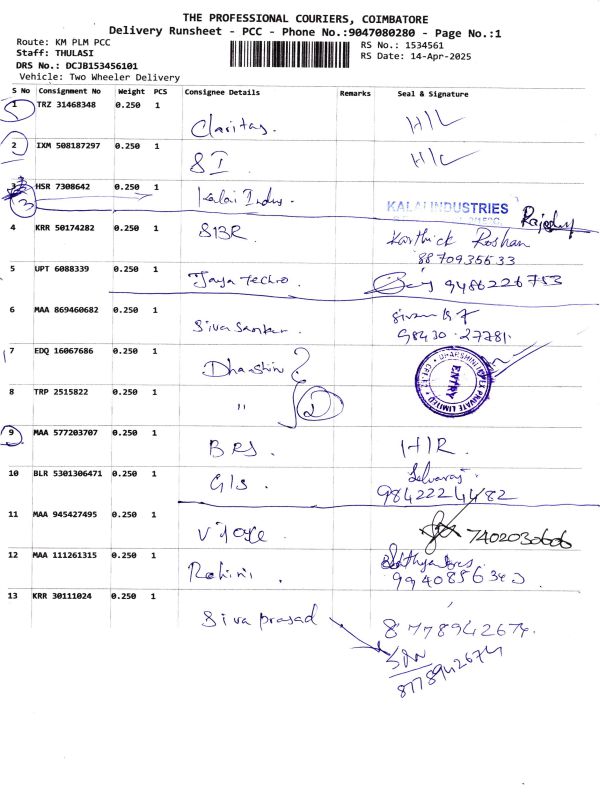 THE PROFESSIONAL COURIERS, COIMBATORE
Delivery Runsheet - PCC - Phone No.:9047080280 - Page No.:1
Route: KM PLM PCC
Staff: THULASI
DRS No.: DCJB153456101
Vehicle: Two Wheeler Delivery
RS No.: 1534561
RS Date: 14-Apr-2025
S No Consignment No Weight PCS Consignee Details Remarks Seal & Signature
1 TRZ 31468348 0.250 1 Claritas. H/L
2 IXM 508187297 0.250 1 S I H/L
3 HSR 7308642 0.250 1 Kalai Indus. KALAI INDUSTRIES
4 KRR 50174282 0.250 1 SBR. Karthick Roshan
8870935633
5 UPT 6088339 0.250 1 Jaya Techro. 9486226753
6 MAA 869460682 0.250 1 Siva Sankar. 98430 27781
7 EDQ 16067686 0.250 1 Dharshini
DHARSHINI PRIVATE LIMITED ENTRY
8 TRP 2515822 0.250 1 " 2
9 MAA 577203707 0.250 1 BRS. H/R.
10 BLR 5301306471 0.250 1 GIS. Selvaraj.
9842224482
11 MAA 945427495 0.250 1 7402030606
12 MAA 111261315 0.250 1 Rohini.
13 KRR 30111024 0.250 1 Siva prasad 8778942674.
8778942674